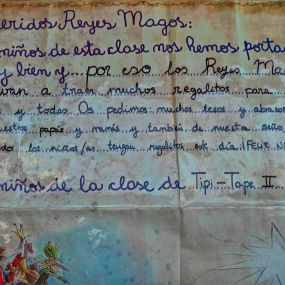 eridos Reyes Magos:
niños de esta clase nos hemos porta
y bien y...por eso los Reyes Ma
van a traer muchos regalitos para
y todas Os pedimos: muchos besos y abrazos
uestros papás y mamás y también de nuestra
los niños/as tengan regalitos este día ¡FELIZ N
niños de la clase de Tipi-Tape II